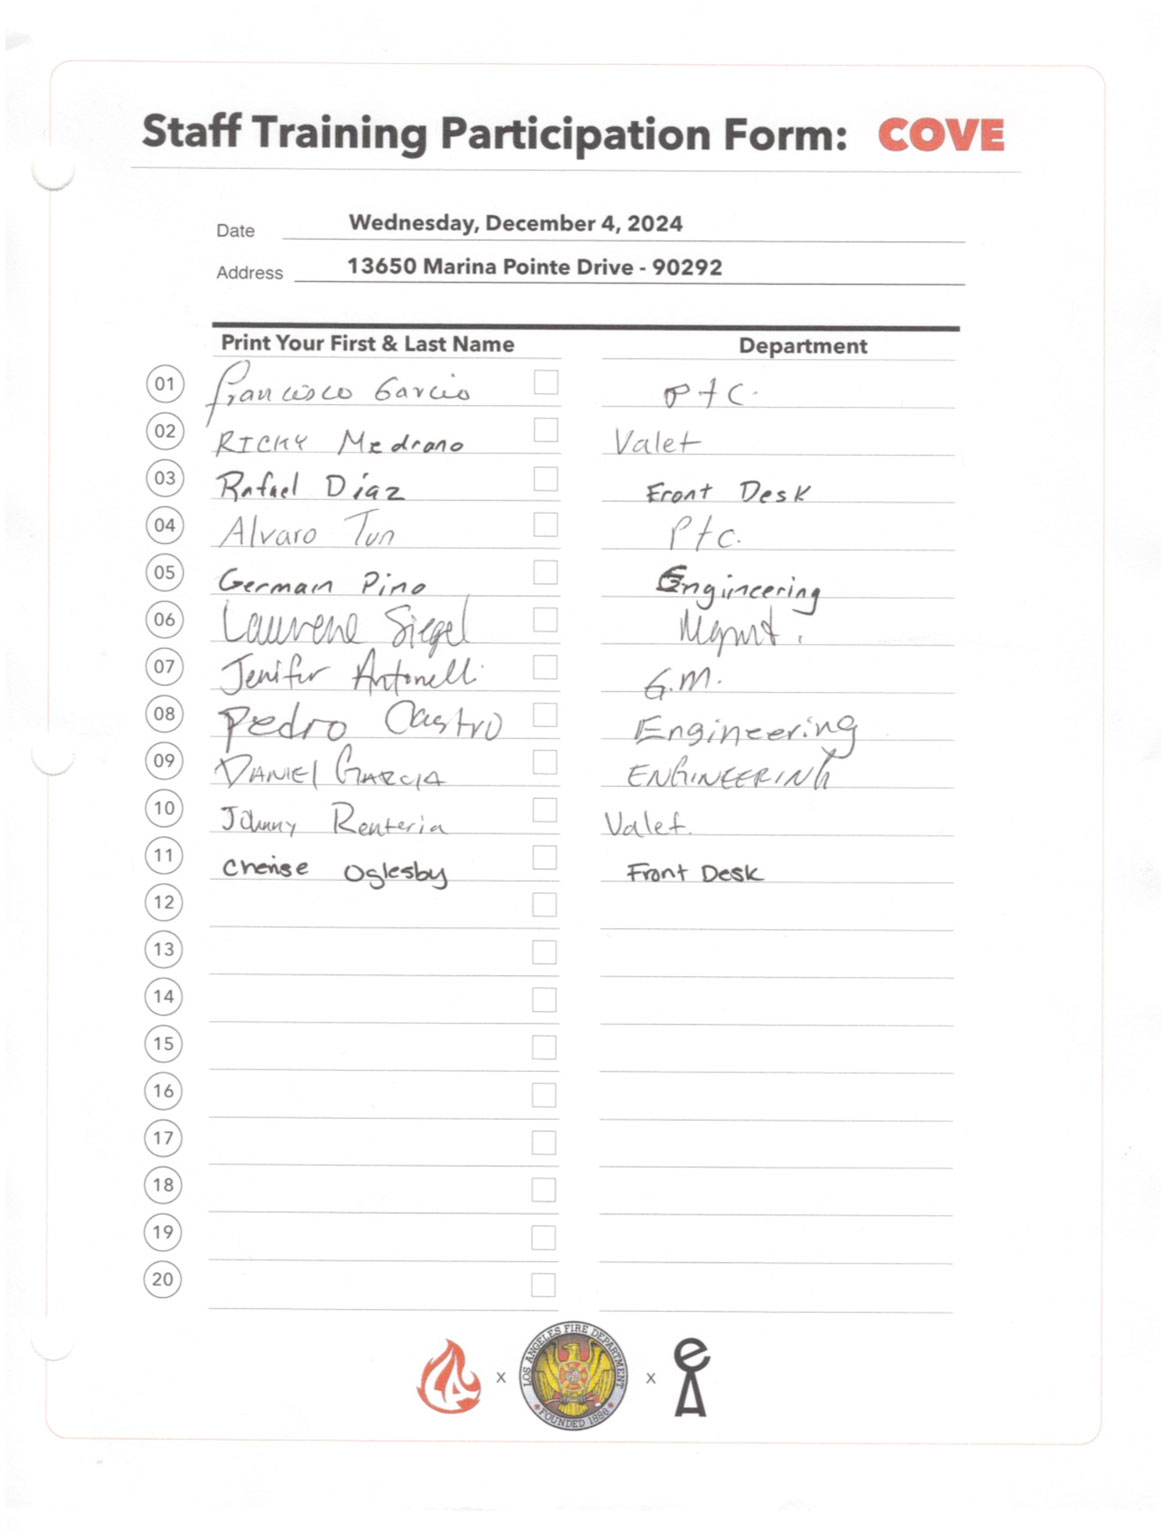 Staff Training Participation Form: COVE
Date Wednesday, December 4, 2024
Address 13650 Marina Pointe Drive - 90292
Print Your First & Last Name Department
01 Francisco Garcia Ptc.
02 RICKY Medrano Valet
03 Rafael Diaz Front Desk
04 Alvaro Tun Ptc.
05 German Pino Engineering
06 Laurene Siegel Mgmt.
07 Jenifer Antonelli G.M.
08 Pedro Castro Engineering
09 DANIEL GARCIA ENGINEERING
10 Johnny Renteria Valet.
11 Cherise Oglesby Front Desk
12
13
14
15
16
17
18
19
20
x LOS ANGELES FIRE DEPARTMENT x eA
FOUNDED 1886